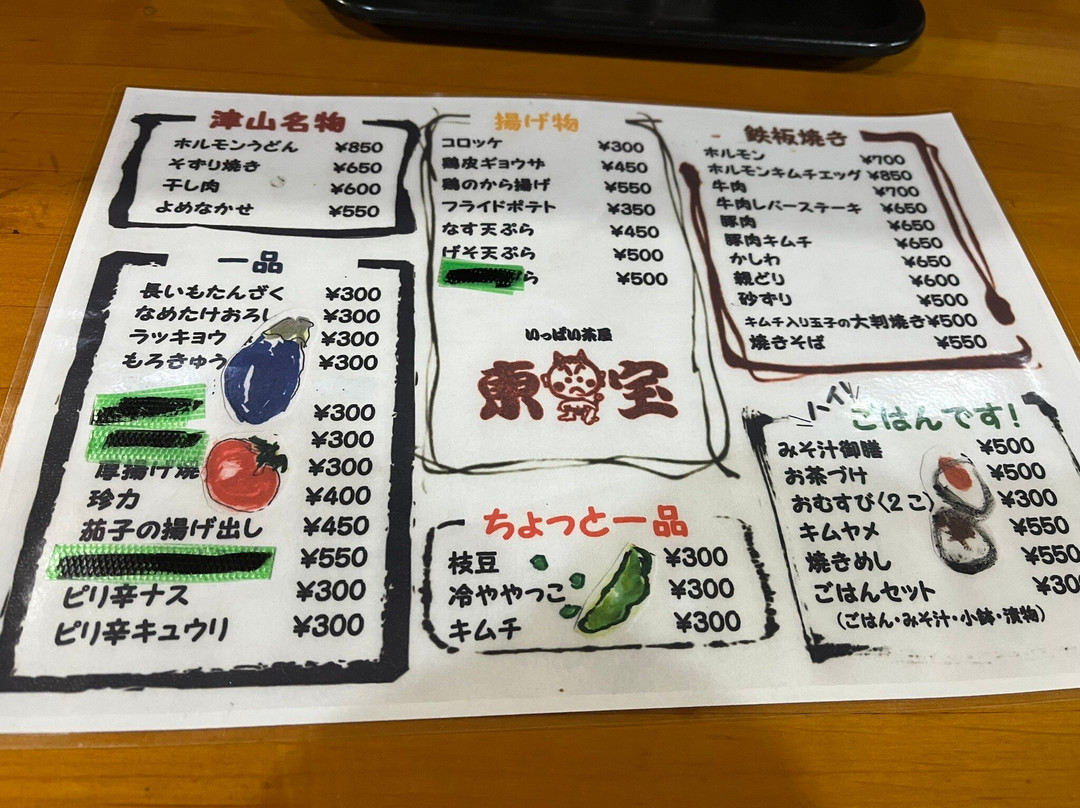 津山名物
ホルモンうどん ¥850
そずり焼き ¥650
干し肉 ¥600
よめなかせ ¥550
一品
長いもたんざく ¥300
なめたけおろし ¥300
ラッキョウ ¥300
もろきゅう ¥300
¥300
¥300
厚揚げ焼 ¥300
珍力 ¥400
茄子の揚げ出し ¥450
¥550
ピリ辛ナス ¥300
ピリ辛キュウリ ¥300
揚げ物
コロッケ ¥300
鶏皮ギョウザ ¥450
鶏のから揚げ ¥550
フライドポテト ¥350
なす天ぷら ¥450
げそ天ぷら ¥500
ら ¥500
いっぱい茶屋
東宝
ちょっと一品
枝豆 ¥300
冷ややっこ ¥300
キムチ ¥300
鉄板焼き
ホルモン ¥700
ホルモンキムチエッグ ¥850
牛肉 ¥700
牛肉レバーステーキ ¥650
豚肉 ¥650
豚肉キムチ ¥650
かしわ ¥650
親どり ¥600
砂ずり ¥500
キムチ入り玉子の大判焼き ¥500
焼きそば ¥550
ハイ!
ごはんです!
みそ汁御膳 ¥500
お茶づけ ¥500
おむすび(2こ) ¥300
キムヤメ ¥550
焼きめし ¥550
ごはんセット ¥300
(ごはん・みそ汁・小鉢・漬物)